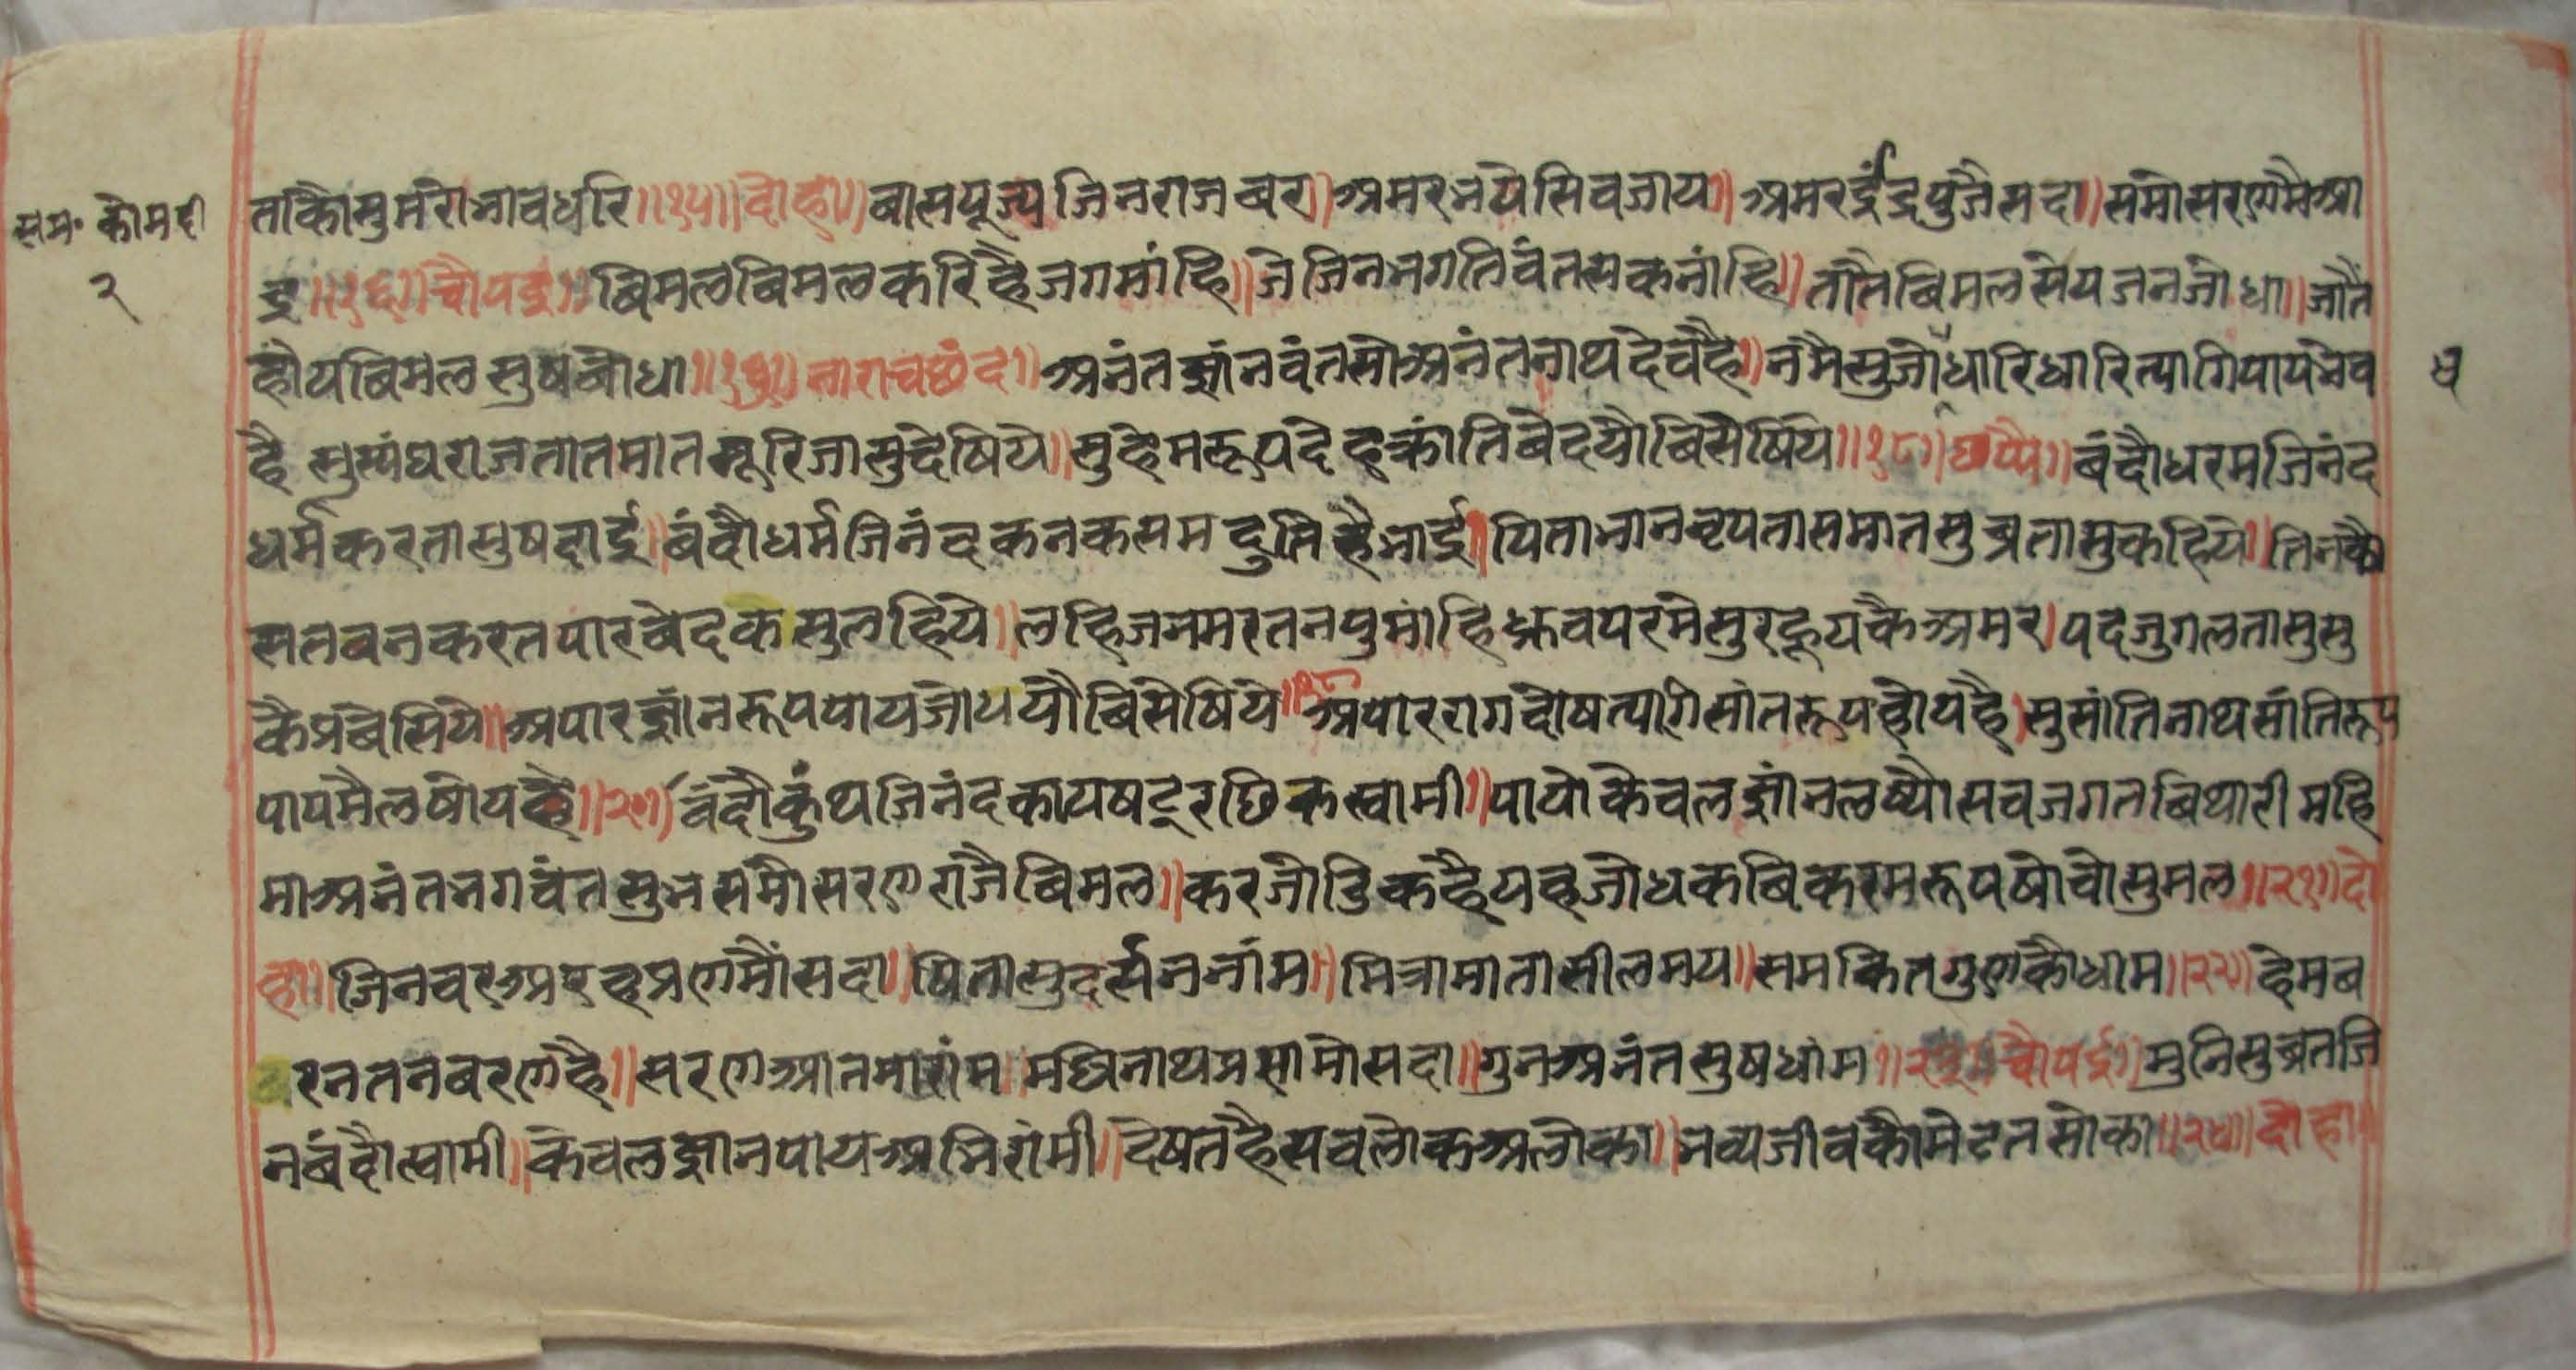 सम॰ कौमदी
२
ताकौ सुमरौ भाव धरि॥१५॥दोहा॥बासपूज्य जिनराज बर॥अमर भये सिव जाय॥अमर इंद्र पुजै सदा॥समोसरण मै आ
इ॥१६॥चौपइ॥बिमल बिमल करि है जग मांहि॥जे जिन भगतिवंत सक नांहि॥तातै बिमल सेय जन जोधा॥जातै
होय बिमल सुष बोधा॥१७॥नाराच छंद॥अनंत ज्ञांनवंत सो अनंतनाथ देव है॥नमै सु जोधारि धारि त्यागि पाप भेव
है सुस्यंघराज तात मात सूरिजा सु देषिये॥सु हेम रूप देह क्रांति बेद यौ बिसेषिये॥१८॥छप्पै॥बंदौ धरम जिनंद
धर्म करता सुषदाई॥बंदौ धर्म जिनंद कनक सम दुति है भाई॥पिता भान नृप तास मात सुव्रता सु कहिये॥तिनकौ
सतबन करत पार बेदक सु लहिये॥लहि जनम रतनपुर मांहि ध्रुव परमेसुर हूय कै अमर॥पद जुगल तासु सु
कै प्रबेसिये॥अपार ज्ञांन रूप पाय जोध यौ बिसेषिये॥१९॥अपार राग दोष त्यागि सांत रूप होय है॥सु सांतिनाथ सांति रूप
पाप मैल षोय है॥२०॥बंदौ कुंथ जिनंद काय षट् रछिक स्वामी॥पायो केवल ज्ञांन लष्यौ सव जगत बिथारी महि
मा अनंत भगवंत सुभ समोसरण राजै बिमल॥कर जोडि कहै यह जोध कबि करम रूप षोवो सु मल॥२१॥दो
हा॥जिनवर अरह प्रणमौं सदा॥पिता सुदर्सन नांम॥मित्रा माता सीलमय॥समकित गुण कौ धाम॥२२॥हेम ब
रन तन बरण है॥सरण आतमारांम॥मल्लिनाथ प्रणमो सदा॥गुन अनंत सुष धांम॥२३॥चौपई॥मुनिसुब्रत जि
न बंदौ स्वामी॥केवल ज्ञान पाय अभिरांमी॥देषत है सव लोक अलोका॥भव्य जीव कौ मेटत सोका॥२४॥दोहा॥